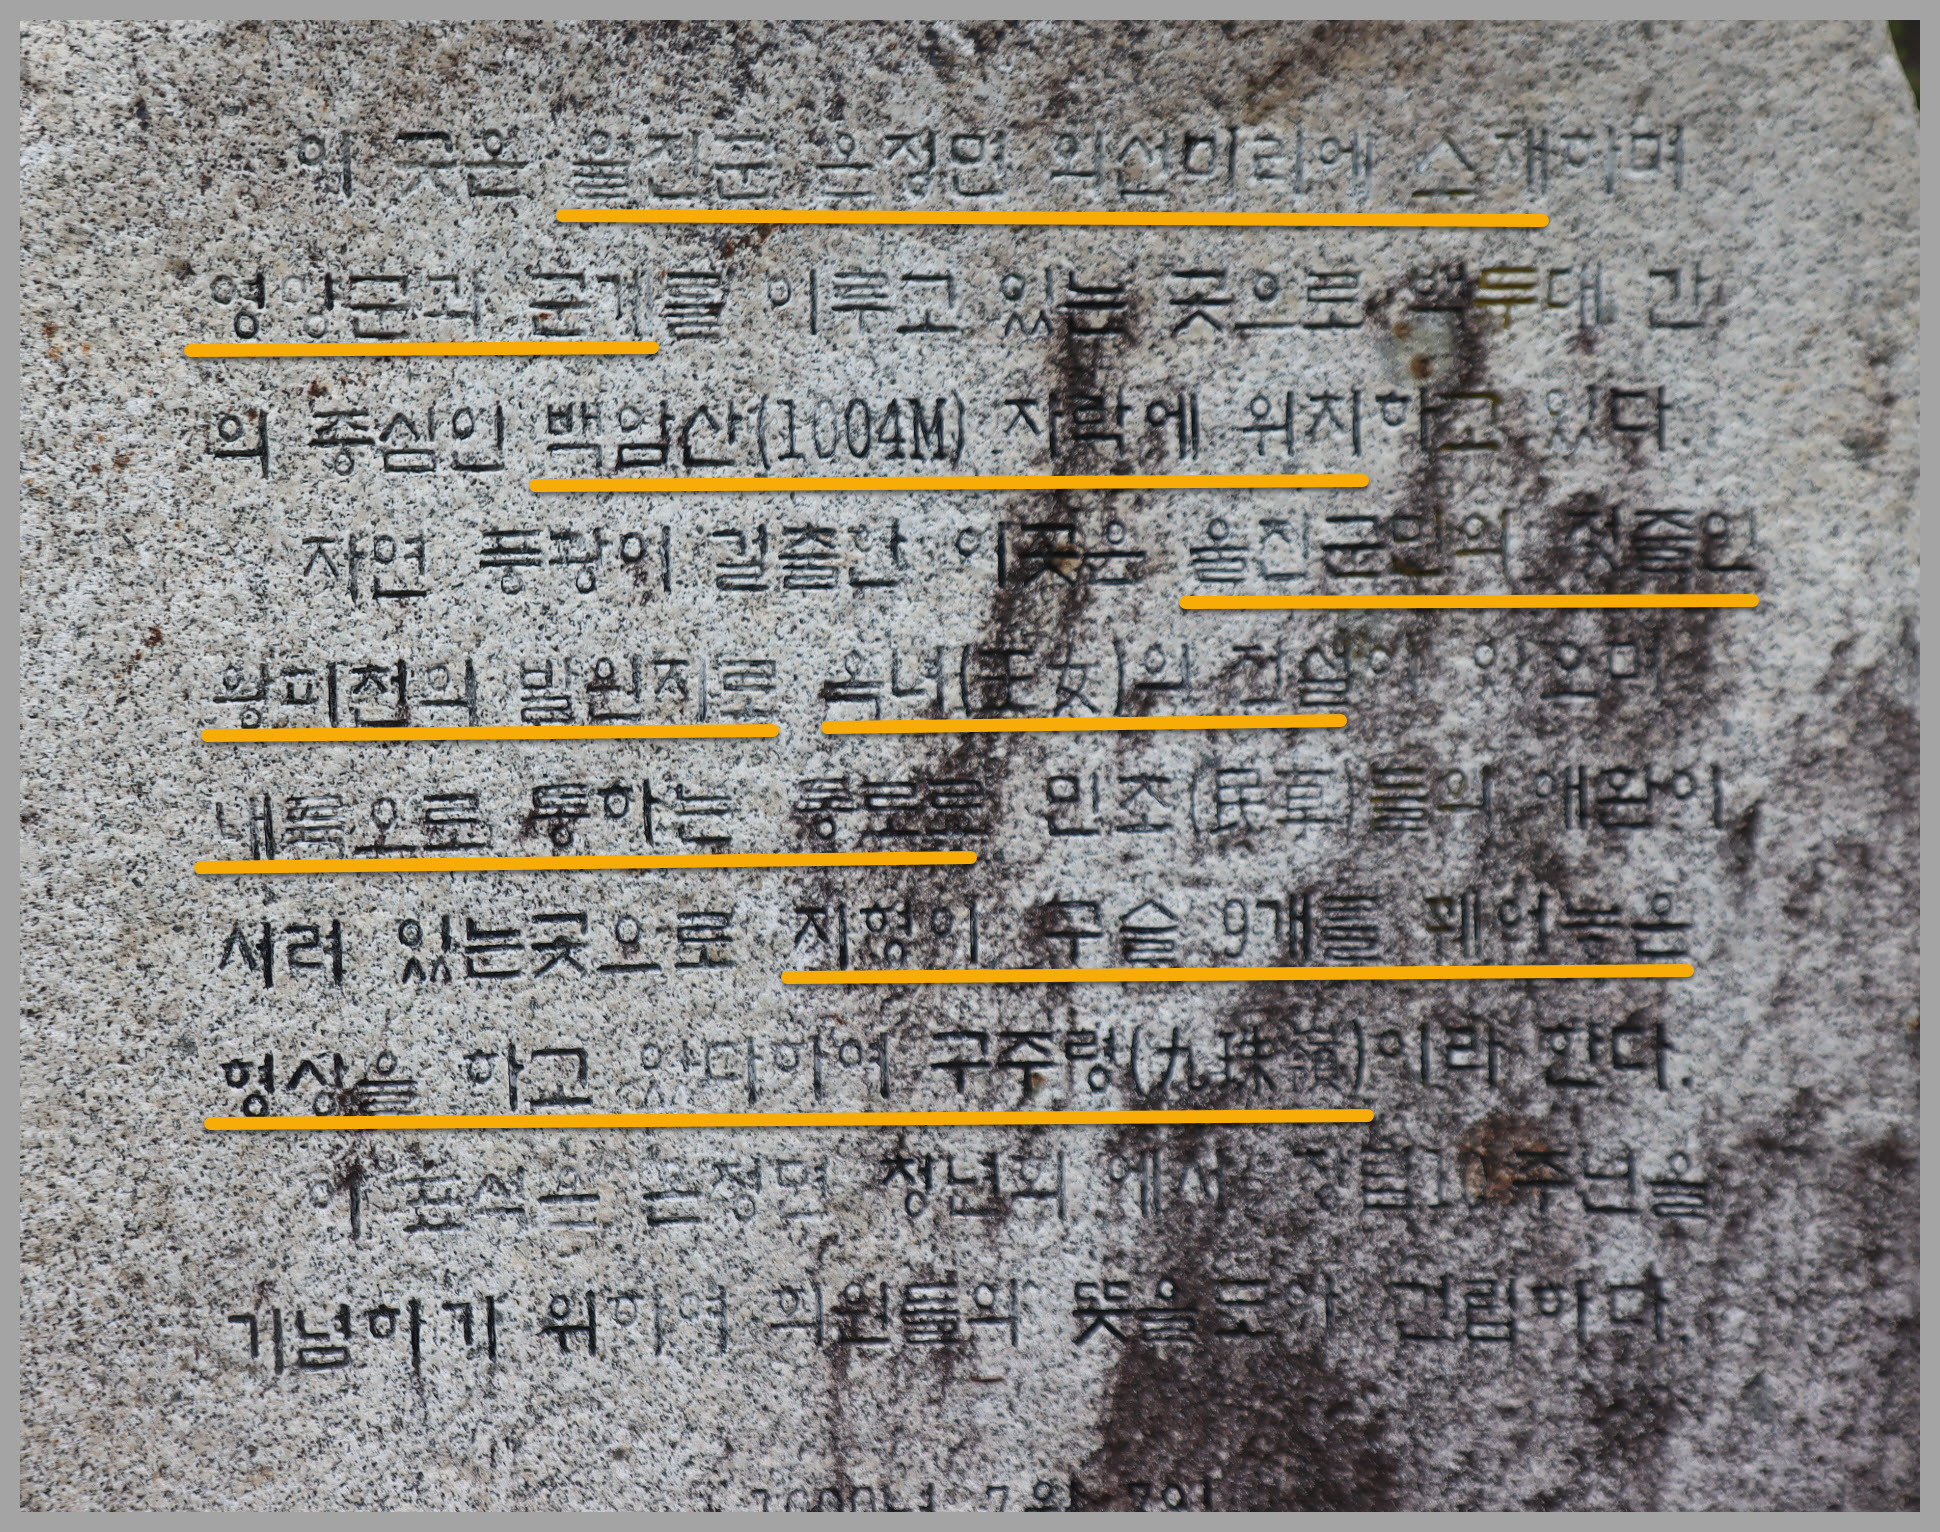 이 곳은 울진군 온정면 외선미리에 소재하며
영양군과 군계를 이루고 있는 곳으로 백두대 간
의 중심인 백암산(1004M) 자락에 위치하고 있다.
자연 풍광이 걸출한 이곳은 울진군민의 젖줄인
왕피천의 발원지로 옥녀(玉女)의 전설이 있으며
내륙으로 통하는 통로로 민초(民草)들의 애환이
서려 있는곳으로 지형이 구슬 9개를 꿰어놓은
형상을 하고 있다하여 구주령(九珠嶺)이라 한다.
이 표석은 온정면 청년회 에서 창립10주년을
기념하기 위하여 회원들의 뜻을모아 건립하다.
7월